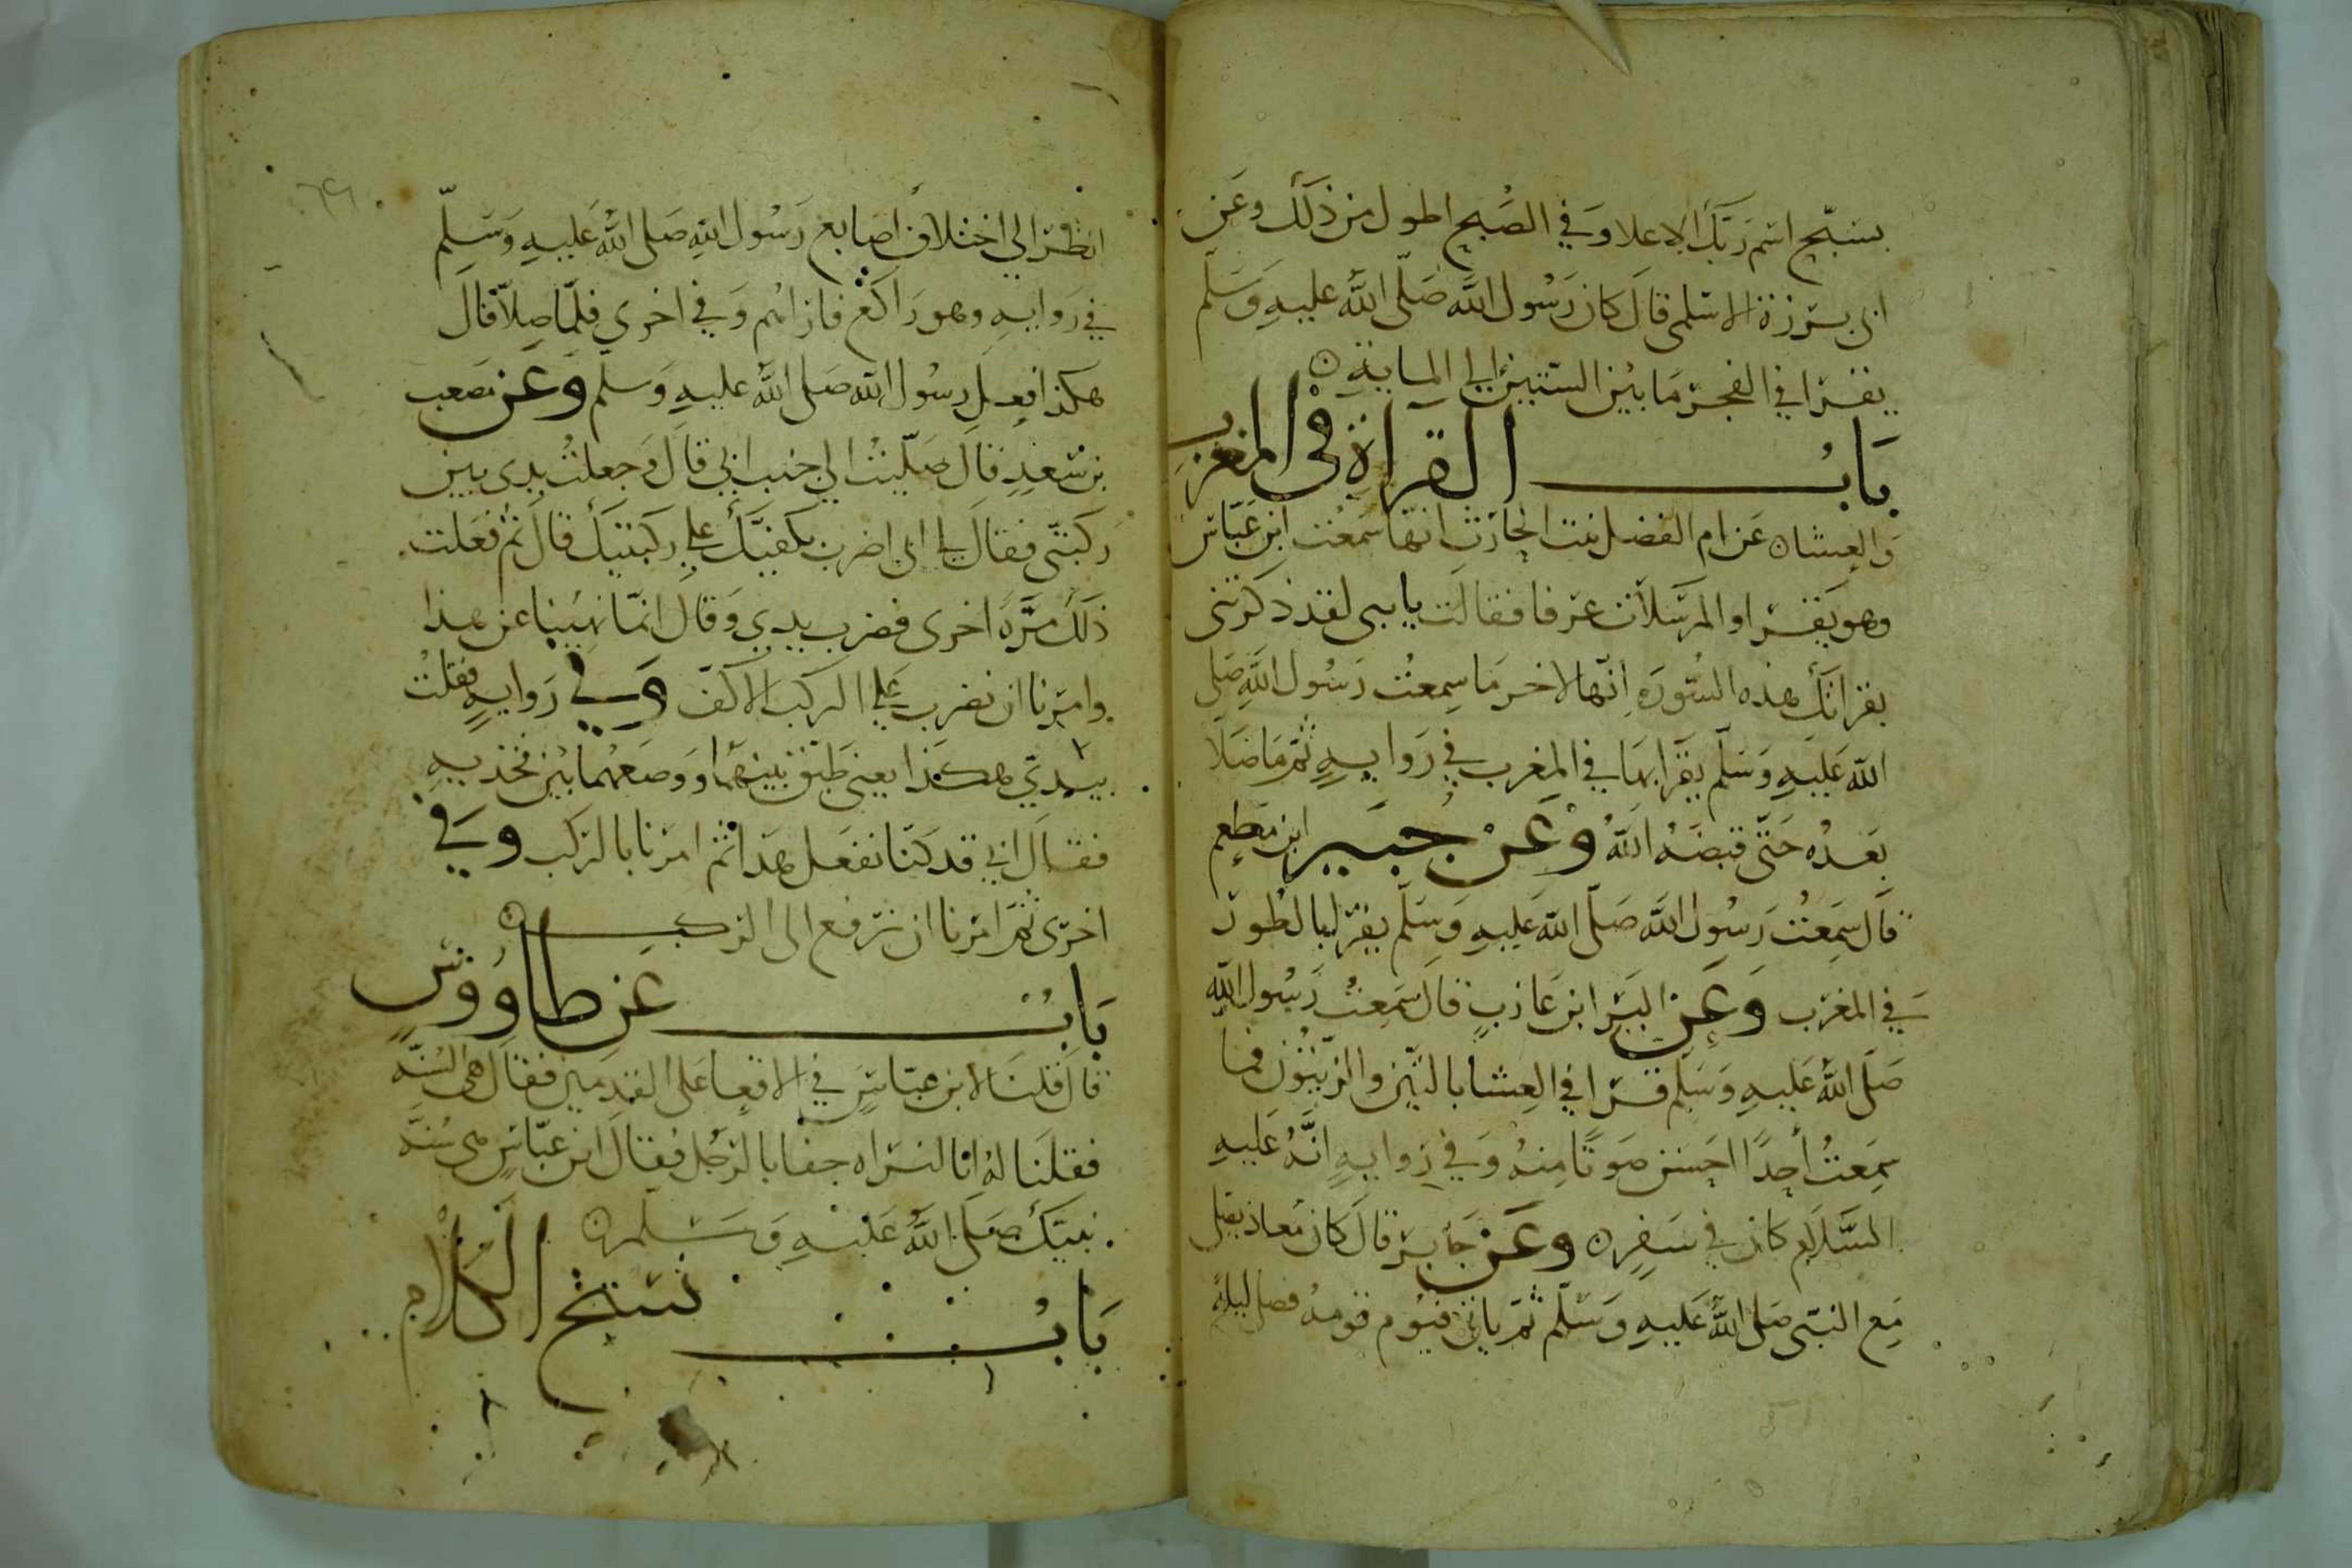 بسبّح اسم ربّك الاعلا وَفي الصُبح اطول من ذلك وعَن
ابى برزة الاسلمى قالَ كان رَسُول اللَّه صَلّى اللَّه عليهِ وَسَلّم
يقرا في الفجر مَا بين الستين الي المايةِ
بَابُ القراة في المغرب
وَالعِشاه عَن ام الفضل بنت الحارث انها سَمعُت ابن عَبّاس
وهو يَقرا والمرسَلات عرفا فقالَت يا بنى لقد ذكرتنى
بقرانك هذه السُّورَه اِنّها لاخر مَا سِمعتُ رَسُول اللَّه صَلى
اللَّه عَليهِ وَسَلّم يقرَا بهَا في المغرب في رَوايهٍ ثمّ مَا صَلا
بَعدُه حَتَّى قبضَهُ اللَّهُ وَعَنْ جُبَير ابن مطعم
قال سَمِعتُ رَسُول اللَّه صَلّى اللَّه عَليهِ وَسَلّم يقرا بالطور
في المغرب وَعَن البَرا ابن عَازبٍ قال سَمِعتُ رَسُول اللَّه
صَلّى اللَّه عَليهِ وَسَلّم قرا في العِشا بالتّين والزّيتُون فما
سَمِعتُ أحدًا احسَن صَوتًا منهُ وَفي رَوايهٍ انّهُ عَليهِ
السَّلام كان في سَفره وَعَنْ جَابر قالَ كانَ مُعاذ يصَلى
مَع النبّى صَلى اللَّه عَليهِ وَسَلّم ثمّ ياتى فيَوم قومهُ فصلى ليلةً
انظر الي اختلاف اصَابع رَسُول اللَّهِ صَلى اللَّه عَليهِ وَسَلّم
في رَوايهٍ وهو رَاكع وَفي اخرى فلمّا صِلّا قالَ
هكذا فعلِ رسُول اللَّه صَلى اللَّه عليهِ وَسلّم وَعَن مصَعب
بن سَعدٍ قال صَلّيتُ الي جنب ابي قالَ وَجعلتُ يدى بين
رَكبتىّ فقالَ لي ابى اضرب بكفيّك عَلي رَكبتيك قالَ ثم فعَلت
ذلك مرّةً اخرى فضرب يدي وَقالَ انمّا نهُينا عن هذا
وامرنا ان نضرب عَلي الركب بالاكفّ وَفي رَوايهٍ فقلتُ
بيَديّ هكذا يعني طَبّق بينهَما وَوضَعهُما بين فخذيهِ
فقالَ ابي قد كنّا نفعَل هَذا ثمّ امرنا بالركب وَفي
اخرَى ثمّ امرنا ان نرفع الى الركب
بَابُ عن طاووُسٍ
قالَ قلنَا لابن عبّاسٍ في الاقعِا عَلى القدمين فقالَ هي السُنّه
فقلنَا لهُ انا لنرَاه جفا بالرجُل فقالَ ابن عبّاسٍ هى سُنّه
نبيّكَ صَلى اللَّهُ عَليهِ وَسَلّم
بَابُ نسَخ الكلام